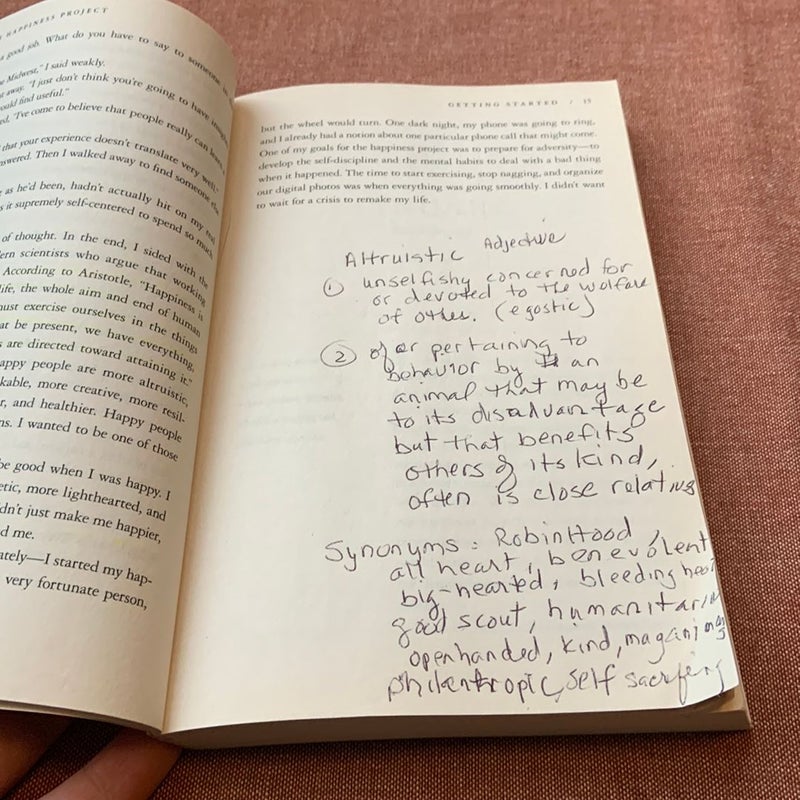 HAPPINESS PROJECT
good job. What do you have to say to someone
Midwest," I said weakly.
away. "I just don't think you're going to have
find useful."
"I've come to believe that people really can
that your experience doesn't translate very well."
Then I walked away to find someone else
as he'd been, hadn't actually hit on my real
it supremely self-centered to spend so much
of thought. In the end, I sided with the
scientists who argue that working
According to Aristotle, "Happiness is
life, the whole aim and end of human
must exercise ourselves in the things
be present, we have everything,
are directed toward attaining it."
people are more altruistic,
more creative, more resil-
and healthier. Happy people
I wanted to be one of those
be good when I was happy. I
more lighthearted, and
didn't just make me happier,
me.
I started my hap-
very fortunate person,
GETTING STARTED / 15
but the wheel would turn. One dark night, my phone was going to ring,
and I already had a notion about one particular phone call that might come.
One of my goals for the happiness project was to prepare for adversity—to
develop the self-discipline and the mental habits to deal with a bad thing
when it happened. The time to start exercising, stop nagging, and organize
our digital photos was when everything was going smoothly. I didn't want
to wait for a crisis to remake my life.
Altruistic Adjective
① unselfishy concerned for
or devoted to the welfare
of other. (egostic)
② of or pertaining to
behavior by an
animal that may be
to its disadvantage
but that benefits
others of its kind,
often is close relatives
Synonyms: RobinHood,
all heart, benevolent
big-hearted, bleeding
good scout, humanitarian
openhanded, kind,
philanthropic, self